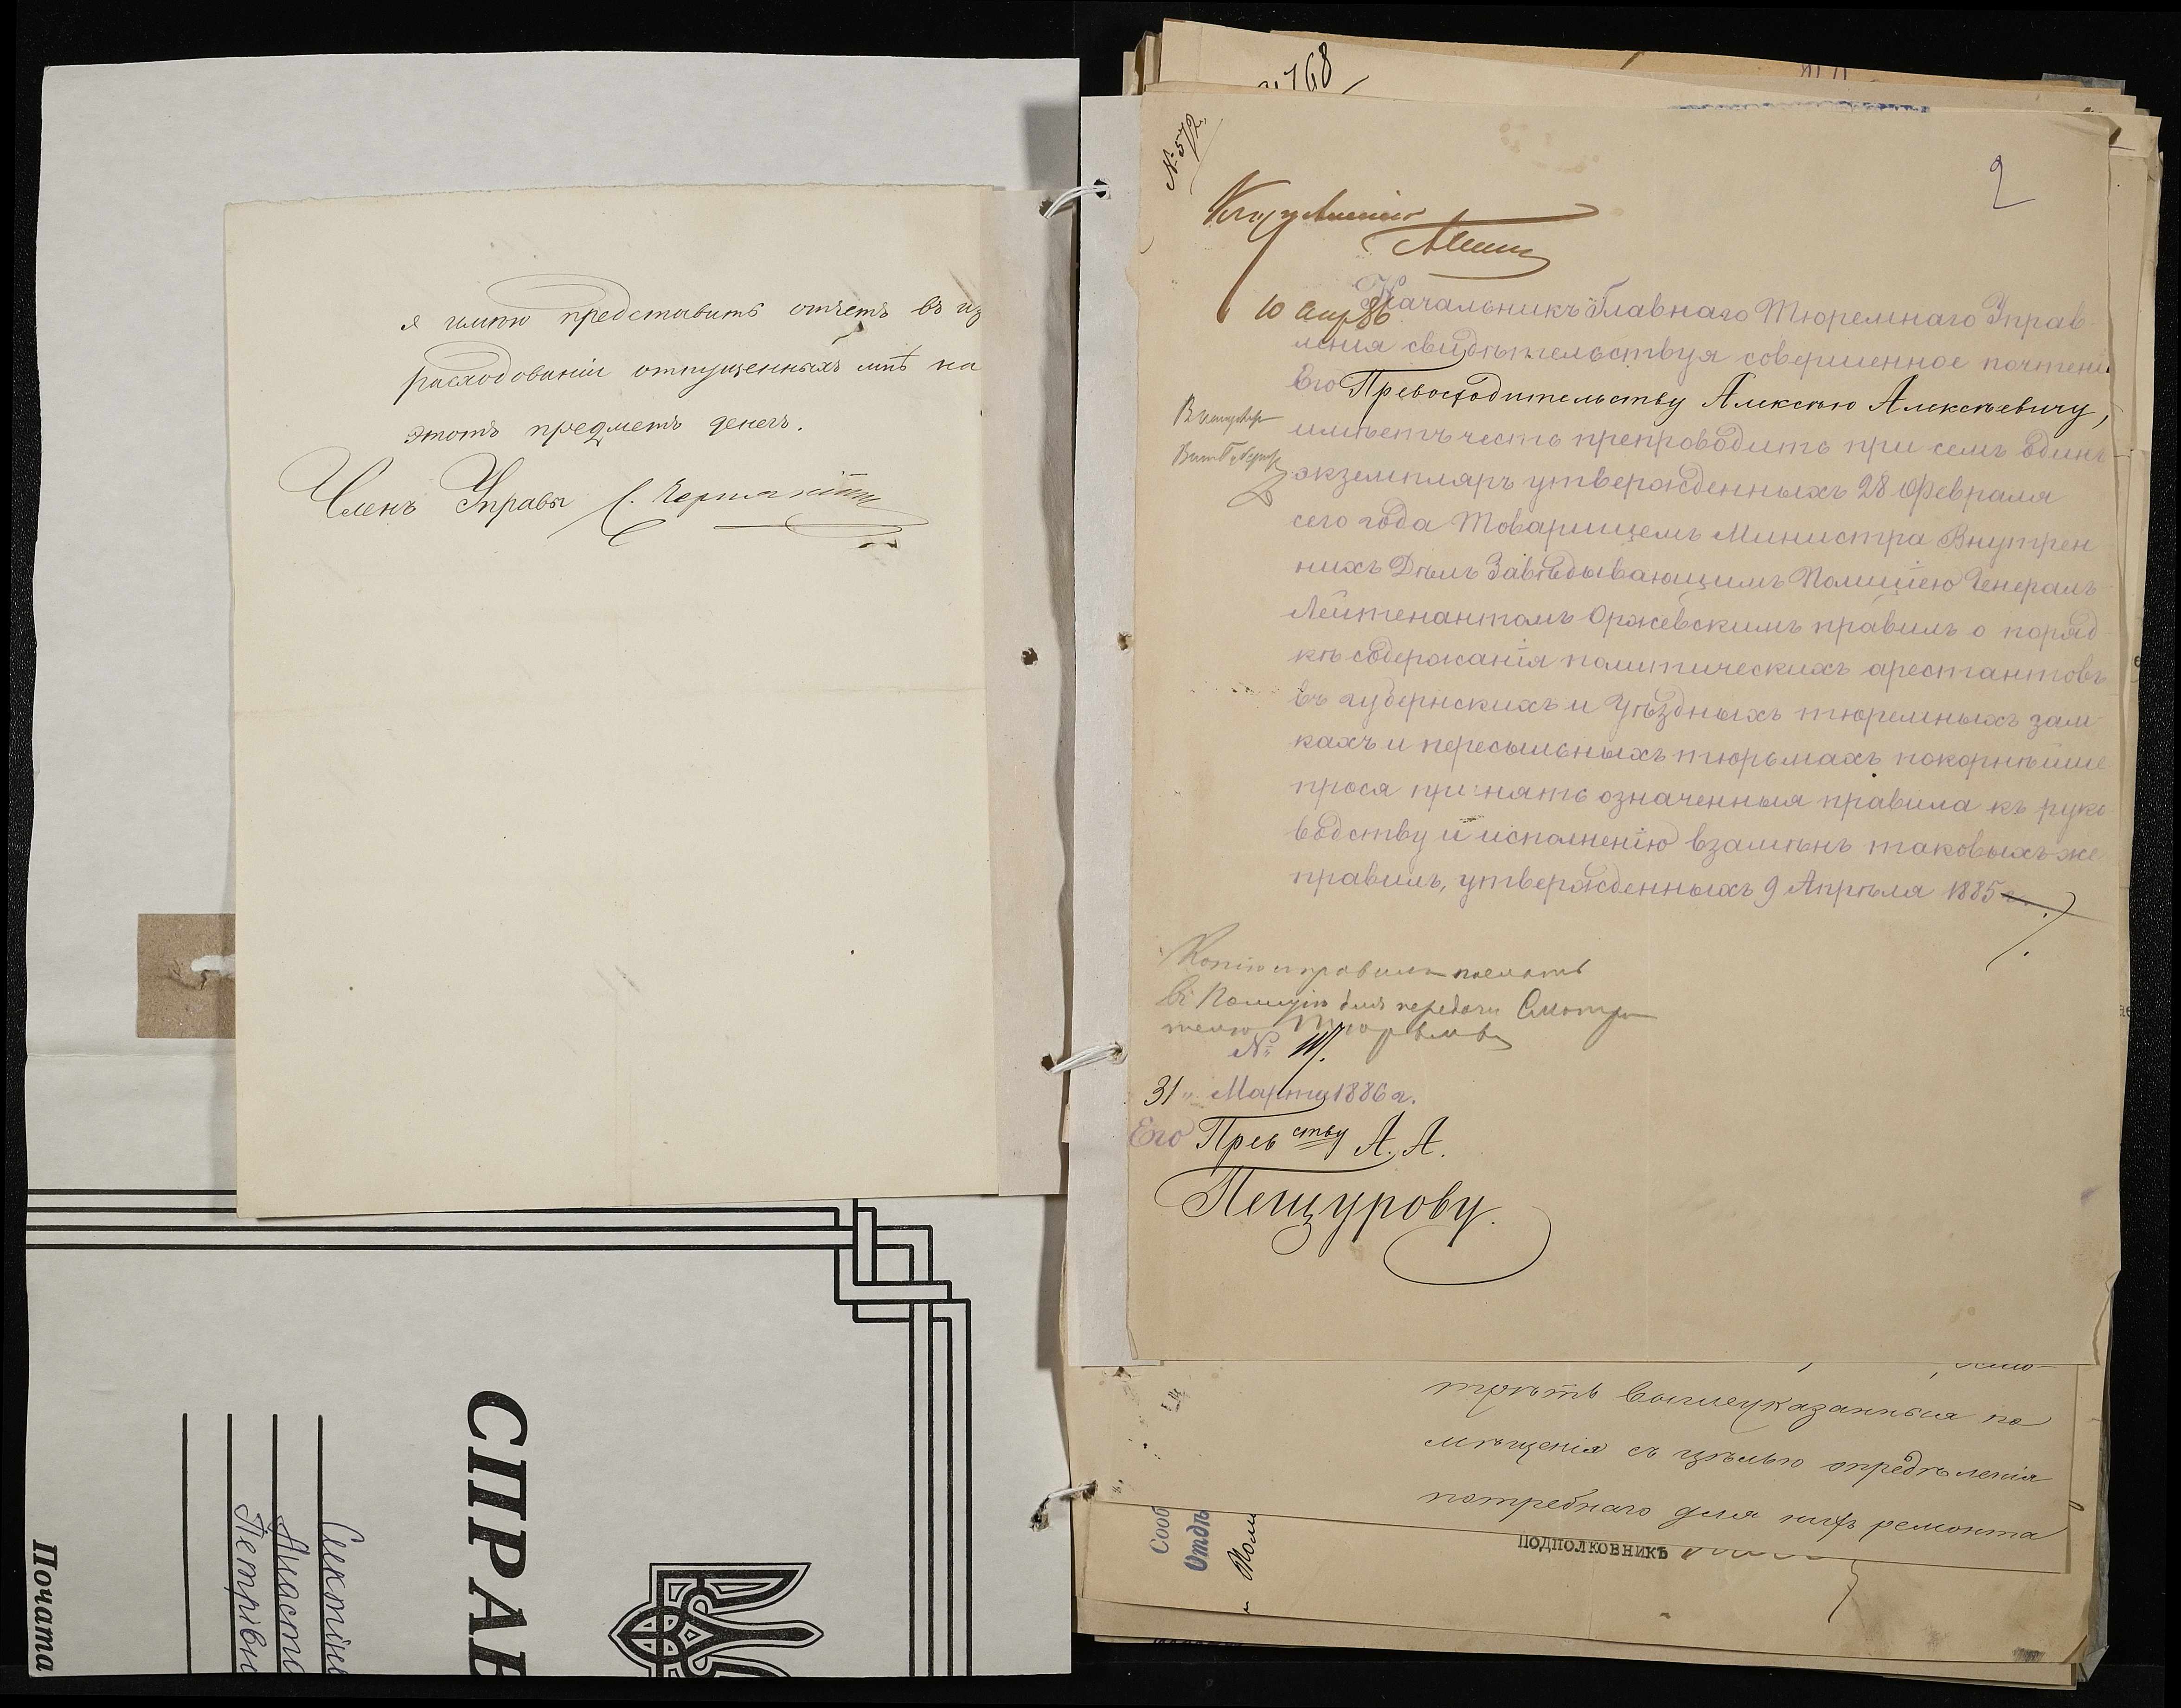 я имѣю представить отчетъ въ из
расходованіи отпущенныхъ мнѣ на
этотъ предметъ денегъ.
Членъ Управы
СПРАВ
Почата
768
№ 572.
2
10 апр 86
Начальникъ Главнаго Тюремнаго Управ
ленія свидѣтельствуя совершенное почтені
Его Превосходительству Алексѣю Алексѣевичу,
имѣетъ честь препроводить при семъ одинъ
экземпляръ утвержденныхъ 28 Февраля
сего года Товарищемъ Министра Внутрен
нихъ Дѣлъ Завѣдывающимъ Полиціею Генералъ
Лейтенантомъ Оржевскимъ правилъ о поряд
кѣ содержанія политическихъ арестантовъ
въ губернскихъ и уѣздныхъ тюремныхъ зам
кахъ и пересыльныхъ тюрьмахъ покорнѣйше
прося принять означенныя правила къ руко
водству и исполненію взамѣнъ таковыхъ же
правилъ, утвержденныхъ 9 Апрѣля 1885 г.
Копію правилъ послать
въ Полицію для передачи Смотри
телю Тюрьмы
№
31 " Марта 1886 г.
Его Прев ству А. А.
Пещурову.
трѣть вышеуказанныя по
мѣщенія съ цѣлью опредѣленія
потребнаго для нихъ ремонта
подполковникъ
Сооб
Отдѣ